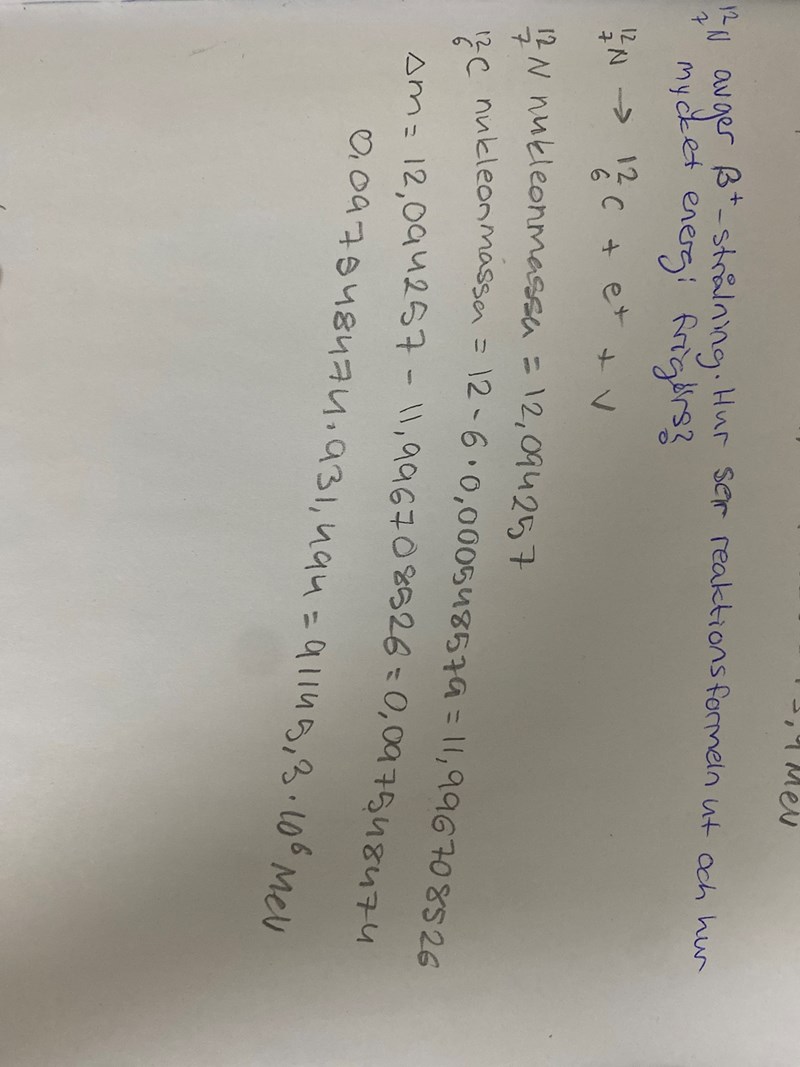 MeV
¹²₇N avger β⁺-strålning. Hur ser reaktionsformeln ut och hur
mycket energi frigörs?
¹²₇N → ¹²₆C + e⁺ + ν
¹²₇N nukleonmassa = 12,094257
¹²₆C nukleonmassa = 12 - 6 · 0,000548579 = 11,996708526
Δm = 12,094257 - 11,996708526 = 0,097548474
0,097548474 · 931,494 = 91145,3 · 10⁶ MeV